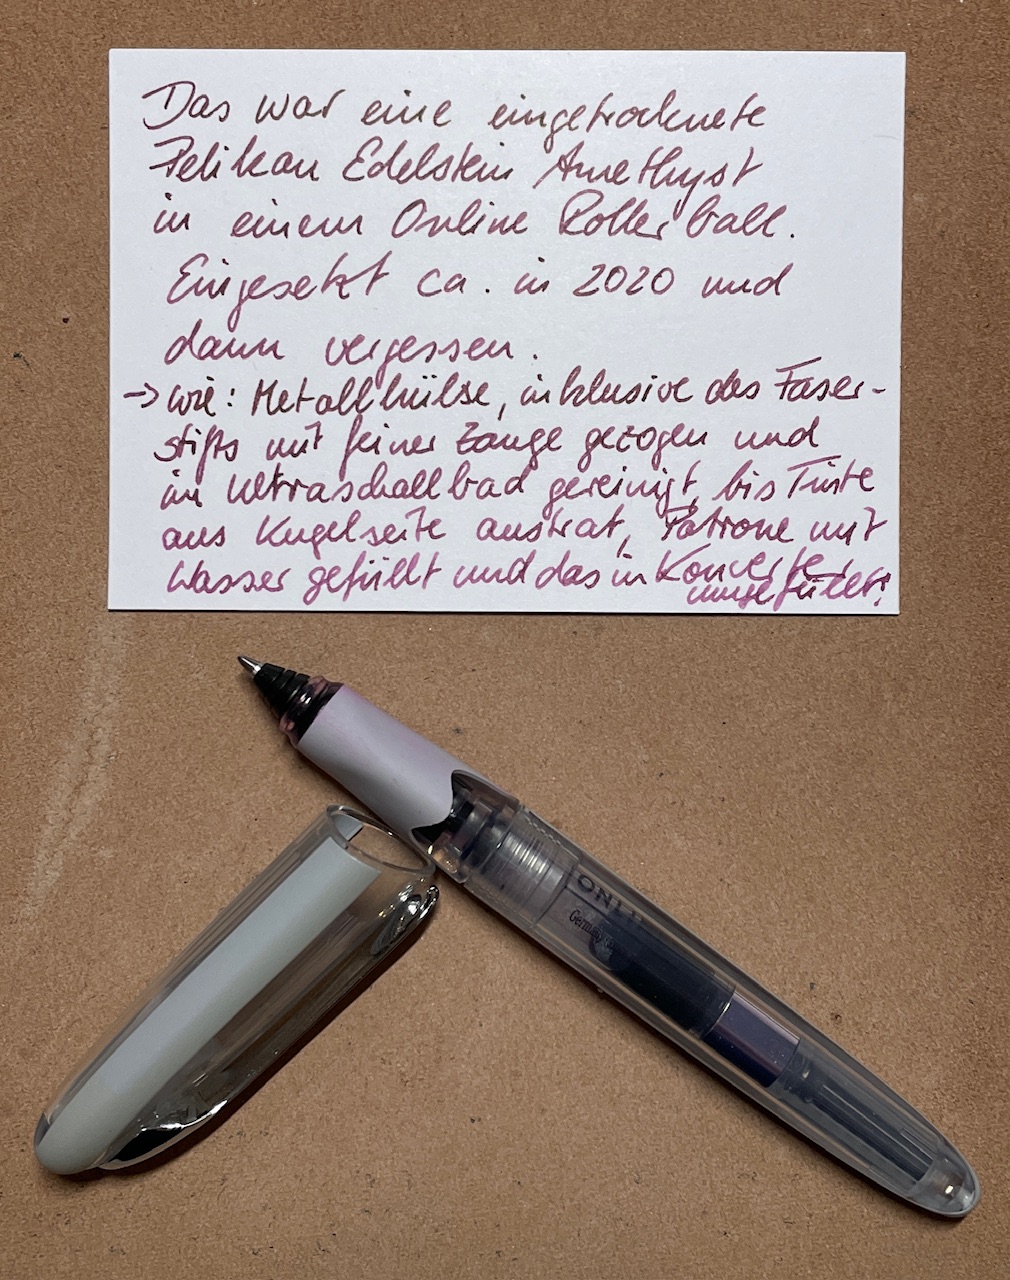 Das war eine eingetrocknete
Pelikan Edelstein Amethyst
in einem Online Rollerball.
Eingesetzt ca. in 2020 und
dann vergessen.
-> Wie: Metallhülse, inklusive des Faser-
stifts mit feiner Zange gezogen und
im Ultraschallbad gereinigt, bis Tinte
aus Kugelseite austrat, Patrone mit
Wasser gefüllt und das in Konverter
umgefüllt!
ONLI
German